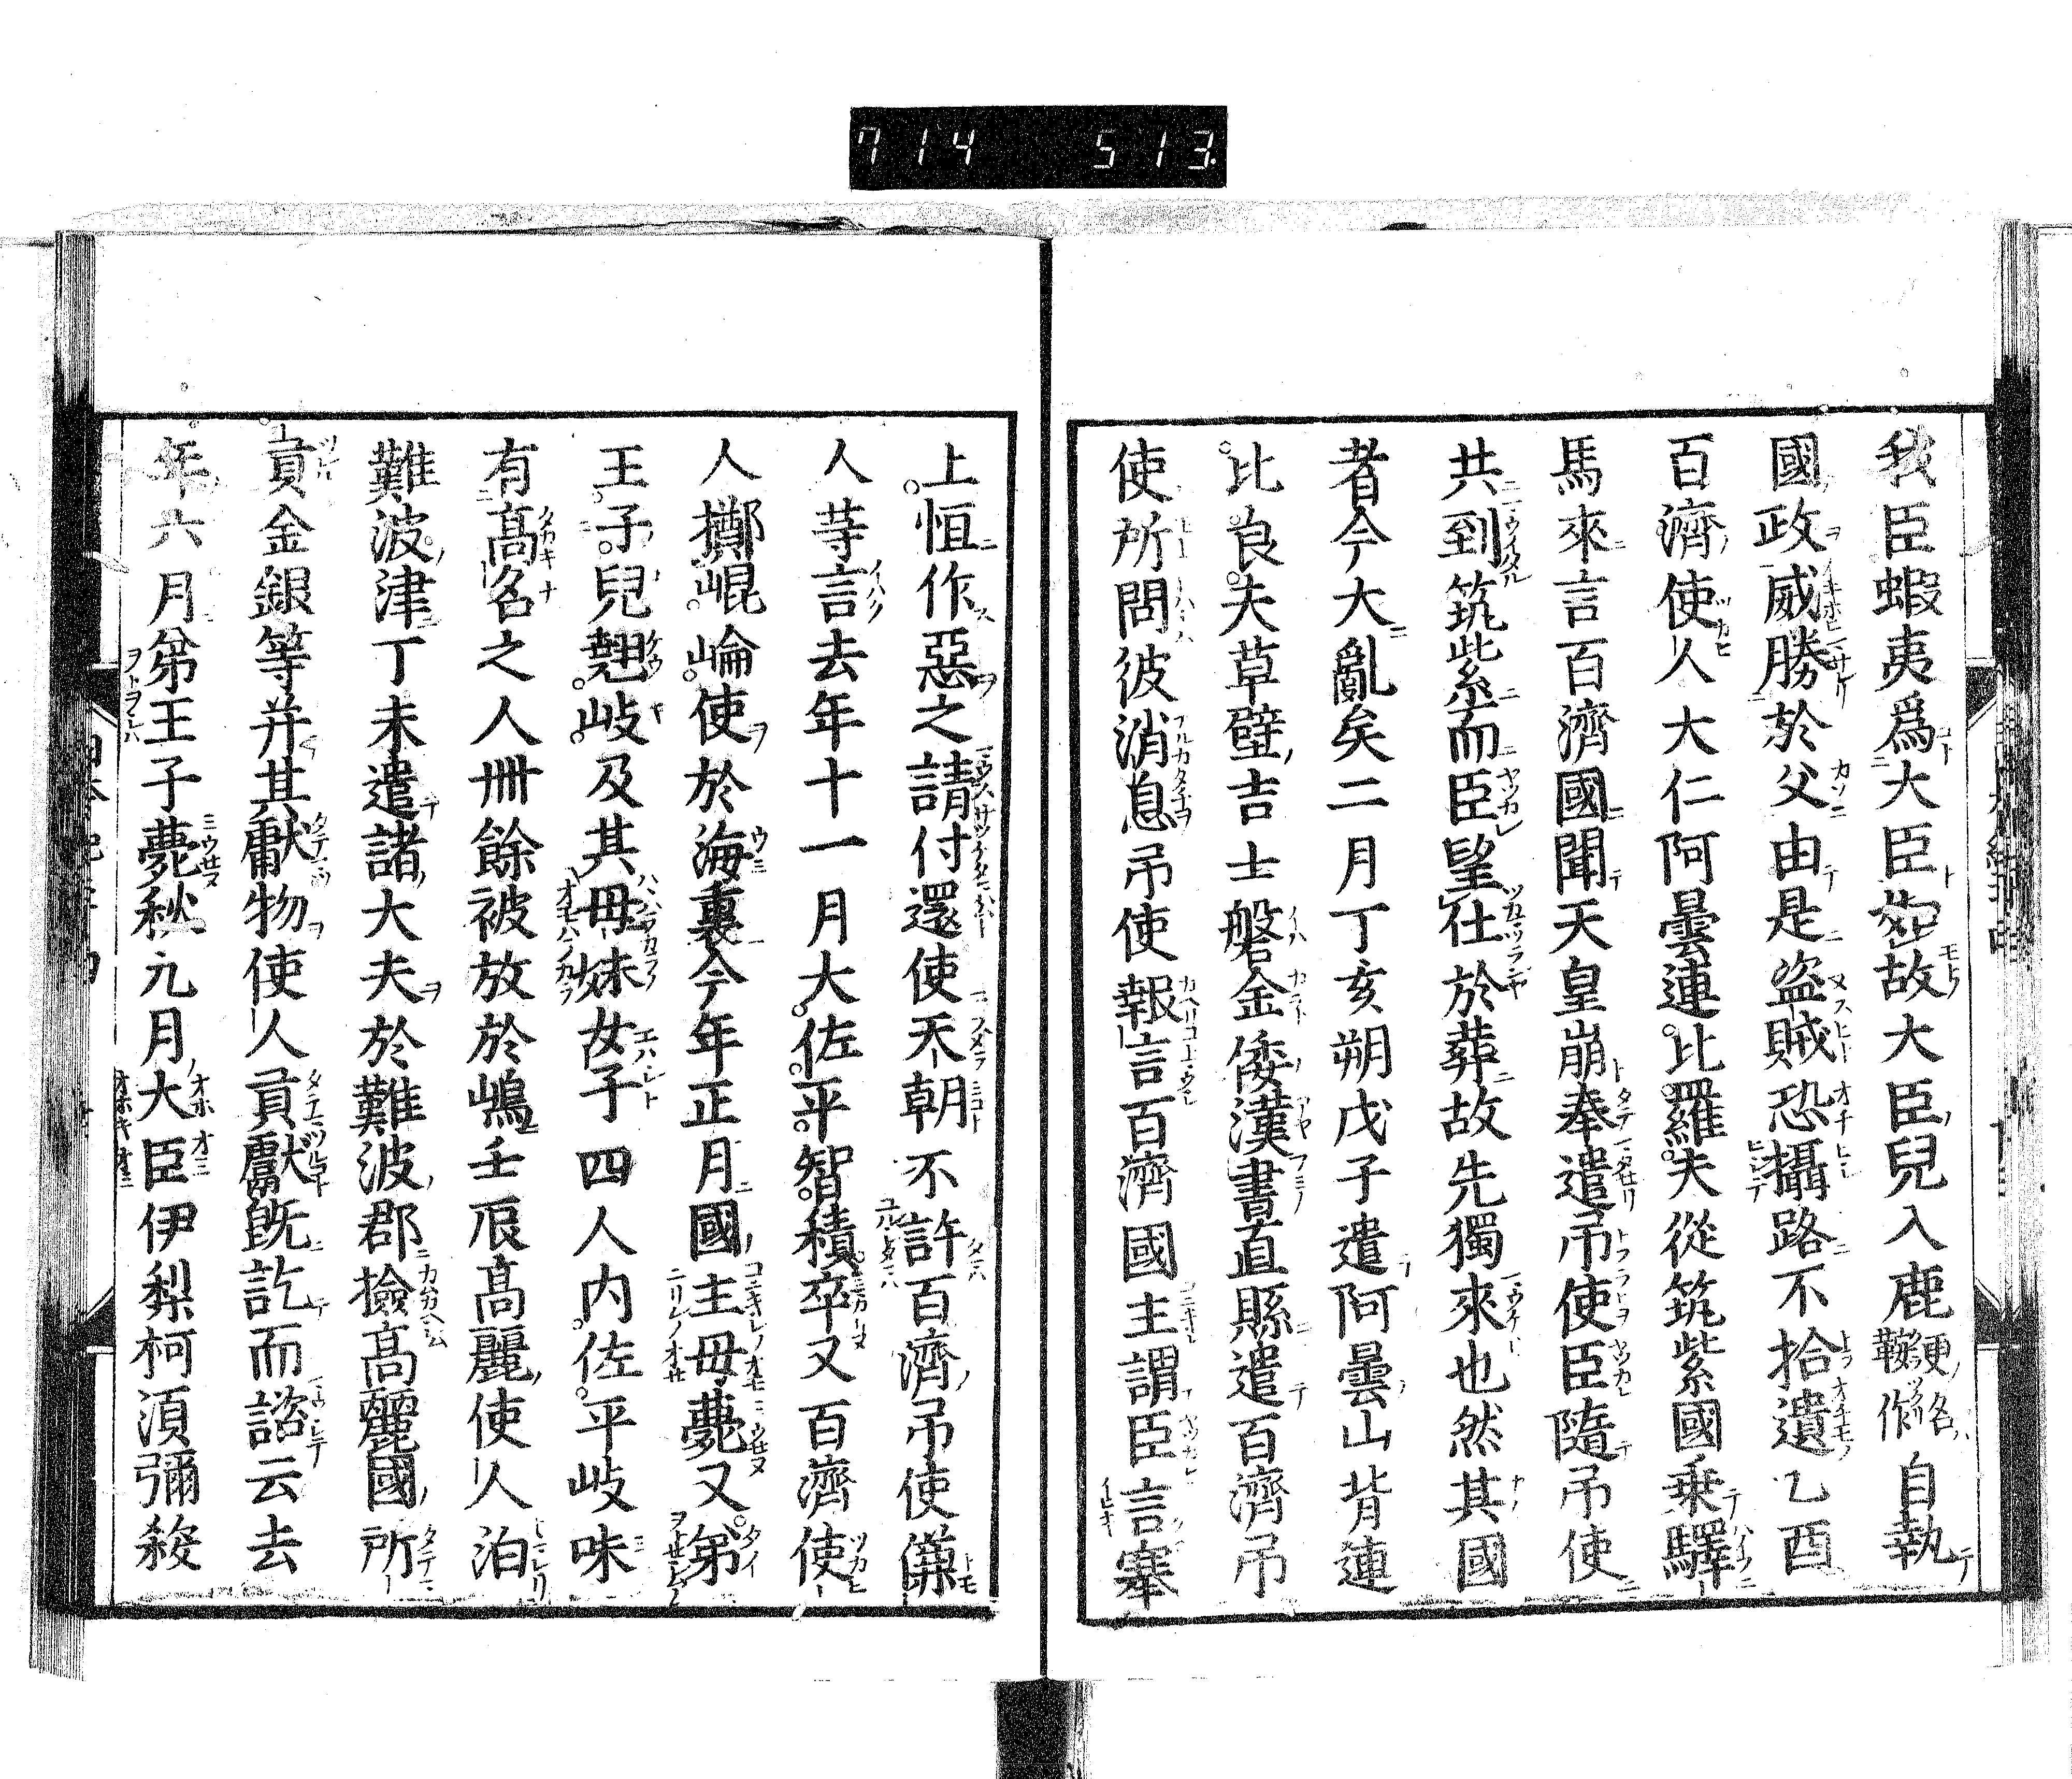 714 513
我臣蝦夷爲大臣如故大臣兒入鹿更名鞍作自執
國政威勝於父由是盗賊恐攝路不拾遺乙酉
百濟使人大仁阿曇連比羅夫從筑紫國乗驛
馬來言百濟國聞天皇崩奉遣吊使臣隨吊使
共到筑紫而臣望仕於葬故先獨來也然其國
者今大亂矣二月丁亥朔戊子遣阿曇山背連
比良夫草壁吉士磐金倭漢書直縣遣百濟吊
使所問彼消息吊使報言百濟國主謂臣言塞
上恒作惡之請付還使天朝不許百濟吊使傔
人等言去年十一月大佐平智積卒又百濟使
人擲崐崘使於海裏今年正月國主母薨又弟
王子兒翹岐及其母妹女子四人内佐平岐味
有髙名之人卌餘被放於嶋壬辰髙麗使人泊
難波津丁未遣諸大夫於難波郡撿髙麗國所
貢金銀等并其獻物使人貢獻既訖而諮云去
年六月弟王子薨秋九月大臣伊梨柯湏彌殺